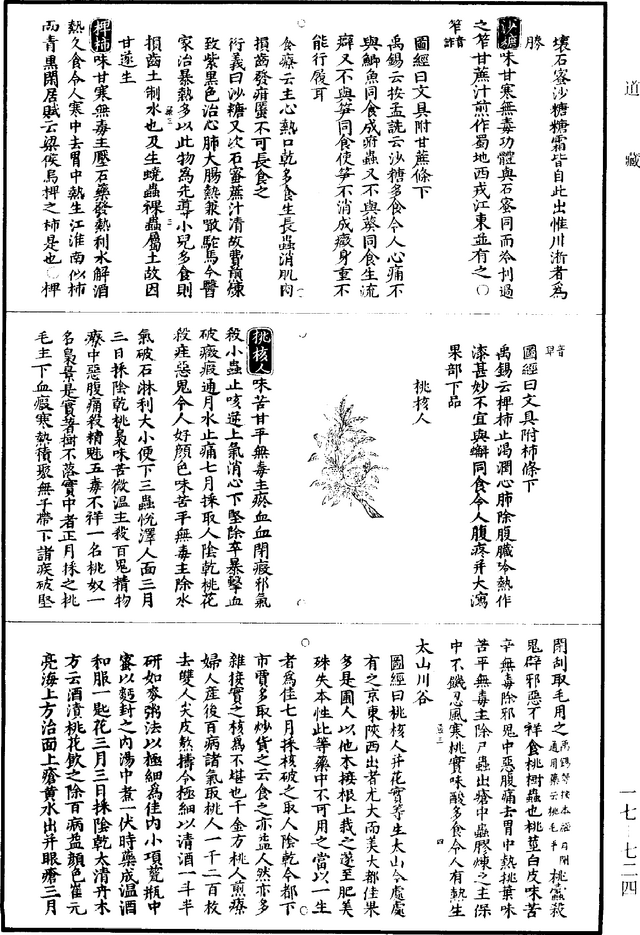 道藏
壞石蜜沙糖糖霜皆自此出惟川浙者為
勝
沙糖味甘寒無毒功體與石蜜同而冷利過
之笮甘蔗汁煎作蜀地西戎江東並有之〇
笮音詐
圖經曰文具附甘蔗條下
禹錫云按孟詵云沙糖多食令人心痛不
與鯽魚同食成疳蟲又不與葵同食生流
癖又不與笋同食使笋不消成癥身重不
能行履耳
食療云主心熱口乾多食生長蟲消肌肉
損齒發疳䘌不可長食之
衍義曰沙糖又次石蜜蔗汁清故費煎煉
致紫黑色治心肺大腸熱兼啖駝馬今醫
家治暴熱多以此物為先導小兒多食則
損齒土制水也及生蟯蟲裸蟲屬土故因
甘遂生
椑柿味甘寒無毒主壓石藥發熱利水解酒
熱久食令人寒中去胃中熱生江淮南似柿
而青黑閑居賦云梁侯烏椑之柿是也〇椑
音卑
圖經曰文具附柿條下
禹錫云椑柿止渴潤心肺除腹臟冷熱作
漆甚妙不宜與蟹同食令人腹疼并大瀉
果部下品
桃核人
桃核人味苦甘平無毒主瘀血血閉瘕邪氣
殺小蟲止咳逆上氣消心下堅除卒暴擊血
破癥瘕通月水止痛七月採取人陰乾桃花
殺疰惡鬼令人好顏色味苦平無毒主除水
氣破石淋利大小便下三蟲悅澤人面三月
三日採陰乾桃梟味苦微溫主殺百鬼精物
療中惡腹痛殺精魅五毒不祥一名桃奴一
名梟景是實著樹不落實中者正月採之桃
毛主下血瘕寒熱積聚無子帶下諸疾破堅
閉刮取毛用之
桃蠹殺
鬼辟邪惡不祥食桃樹蟲也桃莖白皮味苦
辛無毒除邪鬼中惡腹痛去胃中熱桃葉味
苦平無毒主除尸蟲出瘡中蟲膠煉之主保
中不饑忍風寒桃實味酸多食令人有熱生
太山川谷
圖經曰桃核人并花實等生太山今處處
有之京東陝西出者尤大而美大都佳果
多是圃人以他木接根上栽之遂至肥美
殊失本性此等藥中不可用之當以一生
者為佳七月採核破之取人陰乾今都下
市賈多取炒貨之云食之亦益人然亦多
雜接實之核為不堪也千金方桃人煎療
婦人產後百病諸氣取桃人一千二百枚
去雙人尖皮熬擣令極細以清酒一斗半
研如麥粥法以極細為佳內小項甕瓶中
蜜以麵封之內湯中煮一伏時藥成溫酒
和服一匙花三月三日採陰乾太清卉木
方云酒漬桃花飲之除百病益顏色崔元
亮海上方治面上瘡黃水出并眼瘡三月
一七-七二四